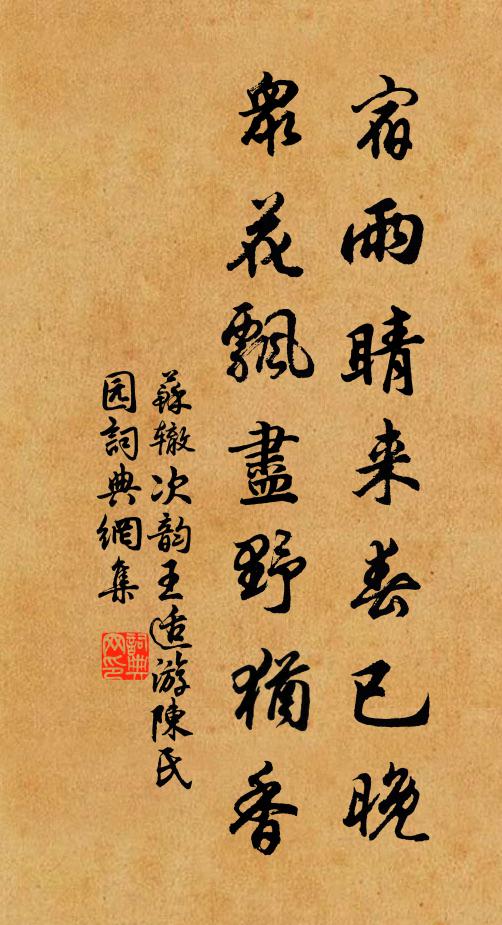 宿雨晴来春已晚
衆花飄盡野猶香
蘇辙次韵王适游陳氏
园詞典網集
詞典网印